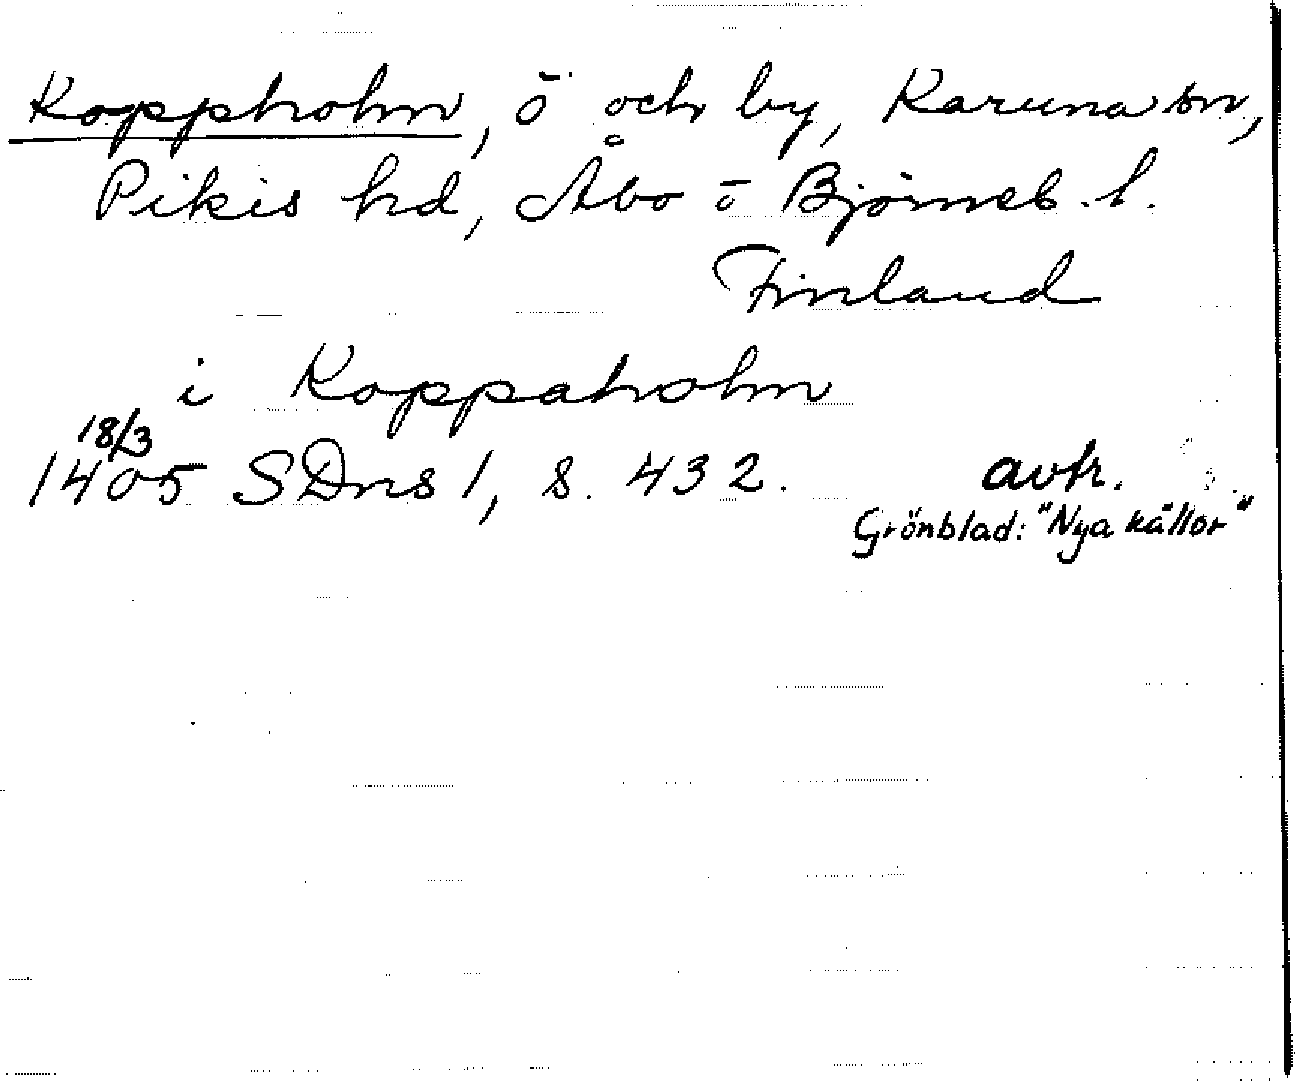 Koppholm, ö och by, Karuna sn,
Pikis hd, Åbo o Björneb. l.
Finland
i Koppaholm
18/3
1405 SDns 1, s. 432. avskr.
Grönblad: "Nya källor"